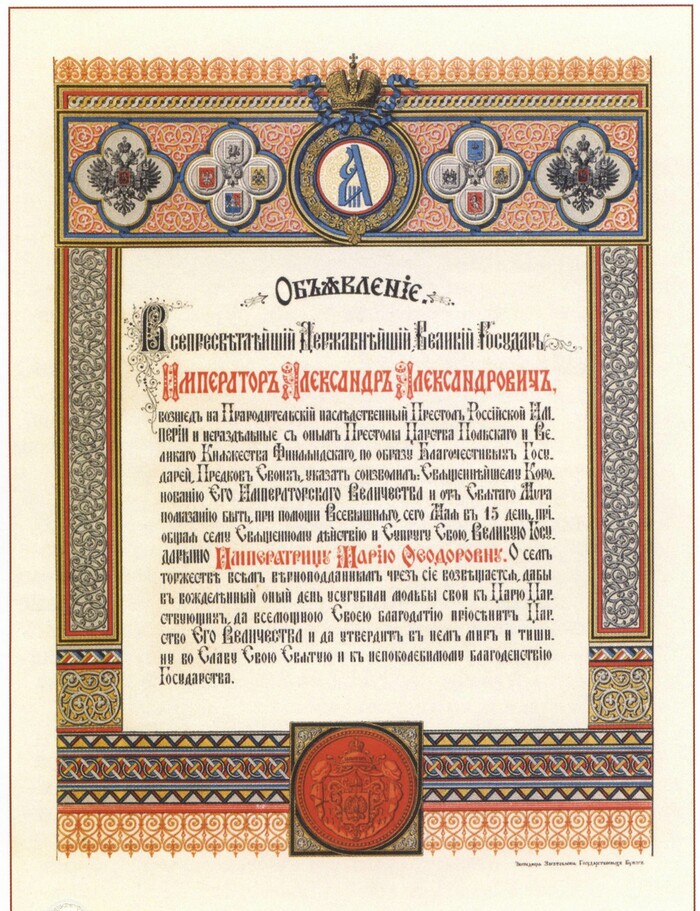 Объѧвленіе.
Всепресвѣтлѣйшій Державнѣйшій Великій Государь
Императоръ Александръ Александровичъ,
возшед на Прародительскій наслѣдственный Престолъ Россійской Им-
періи и нераздѣльные съ онымъ Престолы Царства Польскаго и Ве-
ликаго Княжества Финляндскаго, по образу Благочестивых Госу-
дарей, Предков Своихъ, указать соизволилъ: Священнѣйшему Коро-
нованію Его Императорскаго Величества и отъ Святаго Мура
помазанію быть, при помощи Всевышняго, сего Маѧ въ 15 день, прі-
общая сему Священному дѣйствію и Супругу Свою, Великую Госу-
дарыню Императрицу Марію Ѳеодоровну. О семъ
торжествѣ всѣмъ вѣрноподданнымъ чрезъ сіе возвѣщается, дабы
въ вожделѣнный оный день усугубили мольбы свои къ Царю Цар-
ствующихъ, да всемощною Своею благодатію пріосѣнитъ Цар-
ство Его Величества и да утвердитъ въ немъ миръ и тиши-
ну во Славу Свою Святую и къ непоколебимому благоденствію
Государства.
Экспедиція Заготовленія Государственныхъ Бумагъ